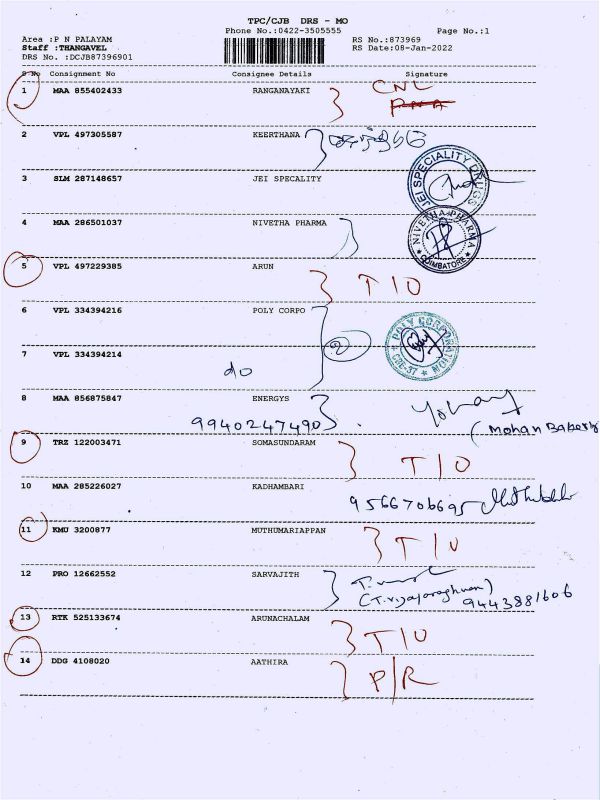 TPC/CJB DRS - MO
Phone No.:0422-3505555 Page No.:1
Area :P N PALAYAM RS No.:873969
Staff :THANGAVEL RS Date:08-Jan-2022
DRS No. :DCJB87396901
S No Consignment No Consignee Details Signature
1 MAA 855402433 RANGANAYAKI CNL
2 VPL 497305587 KEERTHANA
3 SLM 287148657 JEI SPECALITY JEI SPECIALITY DRUGS
4 MAA 286501037 NIVETHA PHARMA NIVETHA PHARMA COIMBATORE
5 VPL 497229385 ARUN T/O
6 VPL 334394216 POLY CORPO
7 VPL 334394214 do 2 POLY CORPORATION CBE-37
8 MAA 856875847 ENERGYS
9940247490
(Mohan
9 TRZ 122003471 SOMASUNDARAM T/O
10 MAA 285226027 KADHAMBARI 9566706695
11 KMU 3200877 MUTHUMARIAPPAN T/O
12 PRO 12662552 SARVAJITH
(T.Vijayaraghvan) 9443881606
13 RTK 525133674 ARUNACHALAM T/O
14 DDG 4108020 AATHIRA P/R